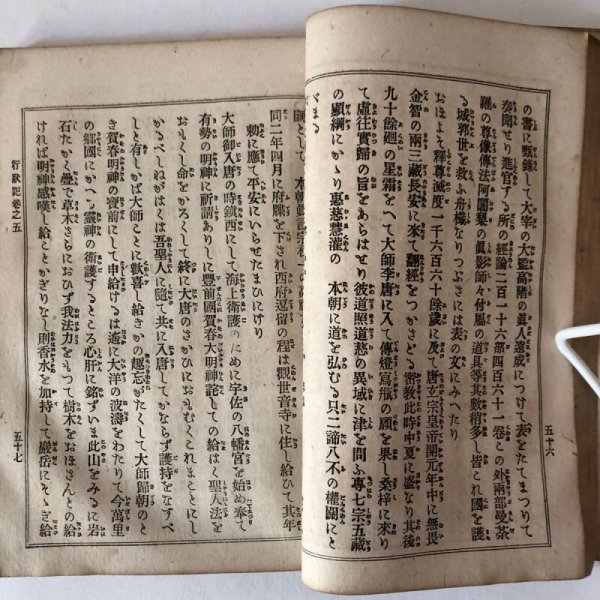 五十六
の書に甄錄して大宰の大監高階の眞人遠成につけて表をたてまつりて
奏聞せり進官する所の經論二百一十六部四百六十一卷この外兩部曼荼
羅の尊像傳法阿闍梨の眞影師々付屬の道具等其數稍多し皆これ國を護
城郭世を救ふ舟檝なりつぶさには表の文にみへたり
おほよそ釋尊滅度一千六百六十餘歲に及で唐立宗皇帝開元年中に無畏
金智の兩三藏長安に來て翻經をつかさどる密敎此時中夏に盛なり其後
九十餘廻の星霜をへて大師李唐に入て傳燈寫瓶の願を果し桑梓に來り
て虛往實歸の旨をあらはせり彼道照道慈の異域に津を問ふ專七宗五藏
の顯綱にかゝり惠慈慧灌の 本朝に道を弘むる只二諦八不の權關にと
どまる
師として 本朝眞言宗
同二年四月に府牒を下され西府逗留の程は觀世音寺に住し給ひて其年
勅に應て平安にいらせたまひにけり
大師御入唐の時鎭西にして海上衛護のために宇佐の八幡宮を始め奉て
有勢の明神に祈請ありしに豐前國賀春大明神詫しての給はく聖人法を
おもくし命をかろくして終に大唐のさかひにおもむくこれまことにし
かるべしねがはくは吾聖人に隨て共に入唐してかならず護持をなすべ
しと有しかば大師ことに歡喜し給き此趣忘がたくして大師歸朝のと
き賀春明神の寶前にして申給けるは遙に大洋の波濤をわたりて今萬里
の鄕國にかへる靈神の衛護するところ心肝に銘ずいま此山をみるに岩
石たかく疊で草木さらにおひず我法力をもつて樹木をおほさんとの給
ければ明神感嘆し給ことかぎりなし則香水を加持して巖岳にそゝぎ給
行狀記卷之五
五十七